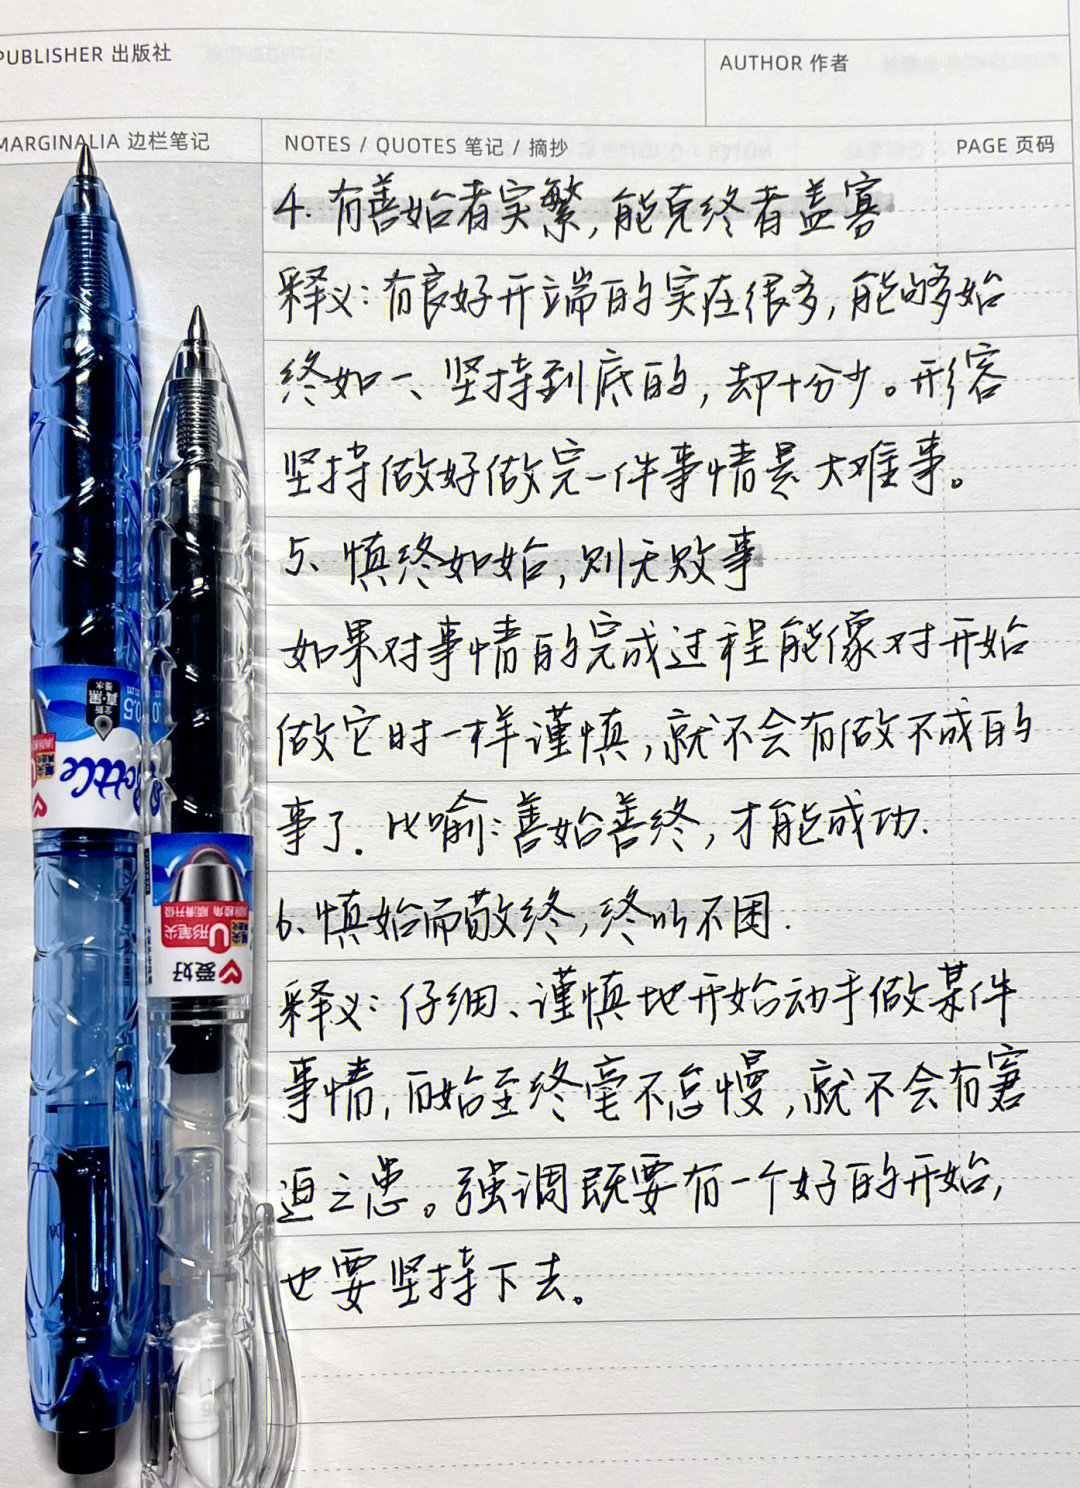 PUBLISHER 出版社
AUTHOR 作者
MARGINALIA 边栏笔记
NOTES / QUOTES 笔记 / 摘抄
PAGE 页码
4. 有善始者实繁,能克终者盖寡
释义:有良好开端的实在很多,能够始
终如一、坚持到底的,却十分少。形容
坚持做好做完一件事情是大难事。
5、慎终如始,则无败事
如果对事情的完成过程能像对开始
做它时一样谨慎,就不会有做不成的
事了.比喻:善始善终,才能成功.
6、慎始而敬终,终以不困.
释义:仔细、谨慎地开始动手做某件
事情,而始至终毫不怠慢,就不会有窘
迫之患。强调既要有一个好的开始,
也要坚持下去。
真·黑
0.5
Bottle
消除棱角 顺滑升级
U形笔尖
爱好